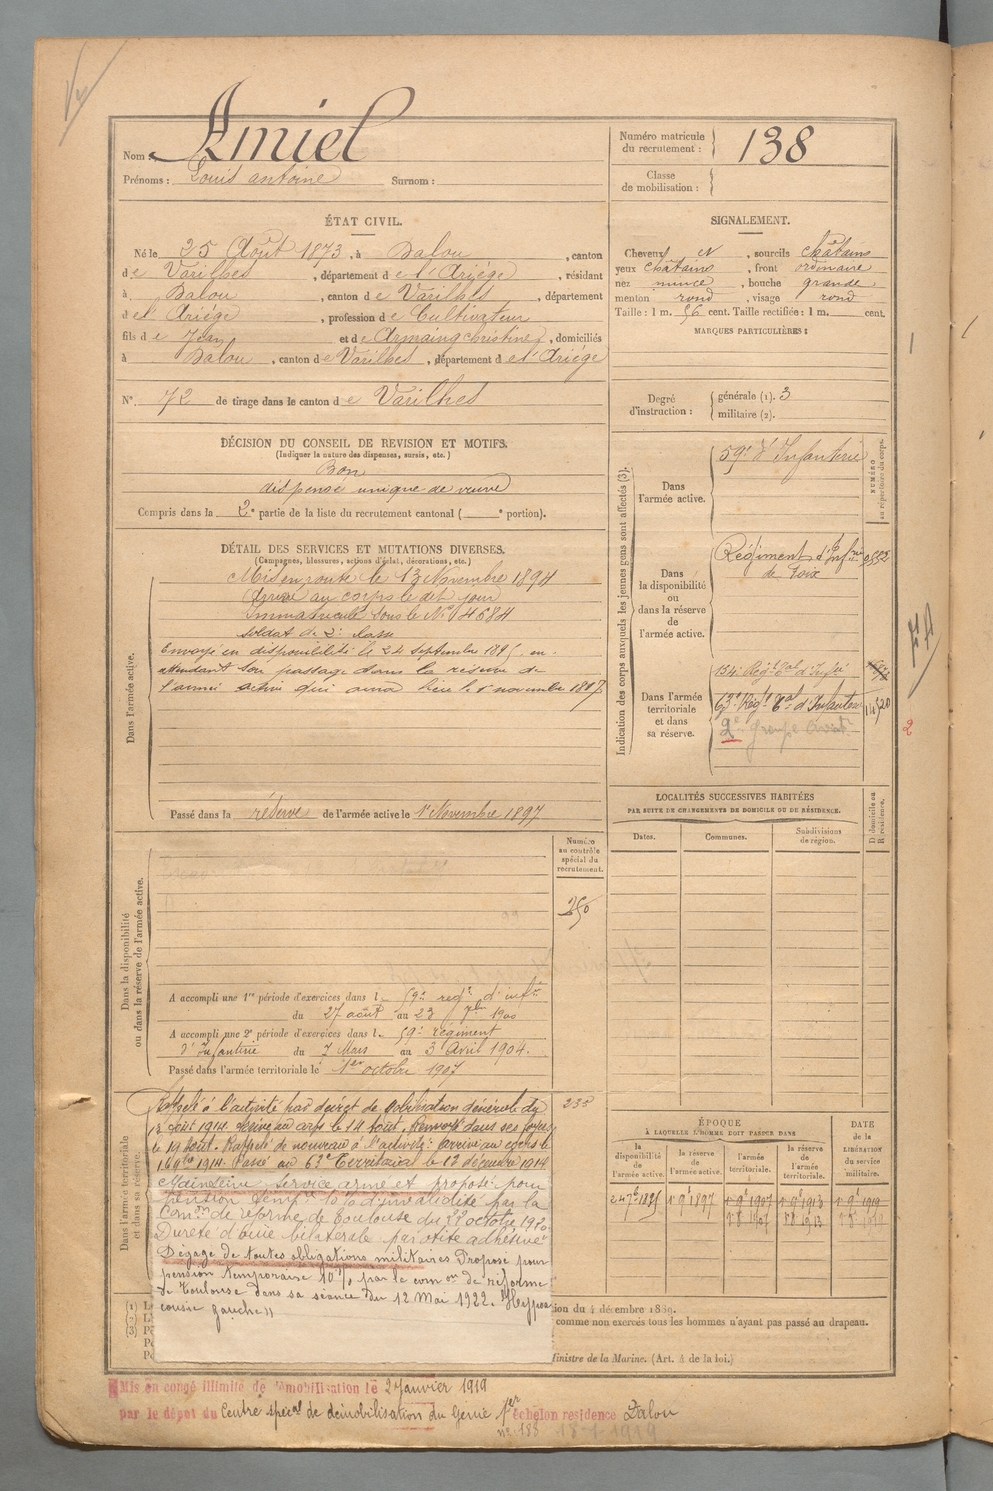 Nom : Amiel
Prénoms : Louis antoine Surnom :
Numéro matricule du recrutement : 138
Classe de mobilisation :
ÉTAT CIVIL.
Né le 25 Août 1873, à Dalou, canton
de Varilhes, département de l'Ariége, résidant
à Dalou, canton de Varilhes, département
de l'Ariége, profession de Cultivateur
fils de Jean et de Armaing christine, domiciliés
à Dalou, canton de Varilhes, département de l'Ariége
N° 72 de tirage dans le canton de Varilhes
SIGNALEMENT.
Cheveux N, sourcils châtains
yeux châtains, front ordinaire
nez mince, bouche grande
menton rond, visage rond
Taille : 1 m. 56 cent. Taille rectifiée : 1 m. cent.
MARQUES PARTICULIÈRES :
Degré d'instruction : générale (1). 3
militaire (2).
DÉCISION DU CONSEIL DE REVISION ET MOTIFS.
(Indiquer la nature des dispenses, sursis, etc.)
Bon
dispensé unique de veuve
Compris dans la 2e partie de la liste du recrutement cantonal ( e portion).
DÉTAIL DES SERVICES ET MUTATIONS DIVERSES.
(Campagnes, blessures, actions d'éclat, décorations, etc.)
Dans l'armée active.
Mis en route le 13 Novembre 1894
Arrivé au corps le dit jour
Immatriculé sous le N° 4684
soldat de 2e classe
Envoyé en disponibilité le 24 septembre 1895 en
attendant son passage dans la réserve de
l'armée active qui aura lieu le 1er novembre 1897
Passé dans la réserve de l'armée active le 1er Novembre 1897
Indication des corps auxquels les jeunes gens sont affectés (3).
NUMÉRO au répertoire du corps.
Dans l'armée active.
59e d'Infanterie
Dans la disponibilité ou dans la réserve de l'armée active.
Régiment d'Infrie
de Foix
Dans l'armée territoriale et dans sa réserve.
134e Régt Tal d'Infie
63e Régt Tal d'Infanterie
2e Groupe
2
LOCALITÉS SUCCESSIVES HABITÉES
PAR SUITE DE CHANGEMENTS DE DOMICILE OU DE RÉSIDENCE.
Dates. Communes. Subdivisions de région. D domicile ou R résidence.
Dans la disponibilité ou dans la réserve de l'armée active.
Numéro au contrôle spécial du recrutement.
250
A accompli une 1re période d'exercices dans l 59e régt d'infie
du 27 août au 23 7bre 1900
A accompli une 2e période d'exercices dans l. 59e régiment
d'Infanterie du 7 Mars au 3 Avril 1904.
Passé dans l'armée territoriale le 1er octobre 1907
Dans l'armée territoriale et dans sa réserve.
Rappelé à l'activité par décret de Mobilisation générale du
août 1914. Arrivé au corps le 14 août. Renvoyé dans ses foyers
le 19 août. Rappelé de nouveau à l'activité : arrivé au corps le
1914. Passé au 63e Territorial le 12 décembre 1914
Maintenu service armé et proposé pour
pension temp. 10% d'invalidité par la
Comon de réforme de Toulouse du 22 octobre 1920.
Dureté d'ouïe bilatérale par otite adhésive
Dégagé de toutes obligations militaires Proposé pour
pension temporaire 10% par le comon de réforme
de Toulouse dans sa séance du 12 Mai 1922. "Hypoa
cousie gauche"
ÉPOQUE
À LAQUELLE L'HOMME DOIT PASSER DANS
la disponibilité de l'armée active. la réserve de l'armée active. l'armée territoriale. la réserve de l'armée territoriale.
DATE de la LIBÉRATION du service militaire.
24 7bre 1895 1er 9bre 1897 1er 9bre 1907 1er 9bre 1913 1er 9bre 1919
(1)
(2)
(3)
ion du 4 décembre 1889.
comme non exercés tous les hommes n'ayant pas passé au drapeau.
Ministre de la Marine. (Art. 4 de la loi.)
Mis en congé illimité de démobilisation le 2 Janvier 1919
par le dépôt du Centre spécal de démobilisation du Génie 1er échelon résidence Dalou
n° 188 18-1-1919